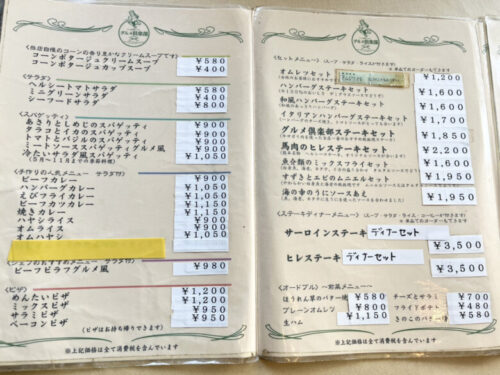 グルメ倶楽部
(当店自慢のコーンの香り豊かなクリームスープです)
コーンポタージュクリームスープ ¥580
コーンポタージュカップスープ ¥400
〈サラダ〉
ヘルシートマトサラダ ¥580
ミニグリーンサラダ ¥400
シーフードサラダ ¥800
〈スパゲッティ〉
あさりとしめじのスパゲッティ ¥900
タラコとイカのスパゲッティ ¥900
トマトとバジルのスパゲッティ ¥900
ミートソーススパゲッティグルメ風 ¥900
冷たいサラダ風スパゲッティ ¥1,050
(5月〜11月までの季節料理)
〈手作りの人気メニュー サラダ付〉
ビーフカレー ¥900
ハンバーグカレー ¥1,050
えびフライカレー ¥1,050
ビーフカツカレー ¥1,150
焼きカレー ¥1,050
ハヤシライス ¥900
オムライス ¥900
オムハヤシ ¥1,050
〈シェフのおすすめメニュー サラダ付〉
ビーフピラフグルメ風 ¥980
〈ピザ〉
めんたいピザ ¥1,200
ミックスピザ ¥1,200
サラミピザ ¥950
ベーコンピザ ¥950
(ピザはお持ち帰りできます)
※上記価格は全て消費税を含んでいます
グルメ倶楽部
〈セットメニュー〉 (スープ・サラダ・ライス付です)
※単品でのオーダーもできます
オムレツセット ¥1,200
ハンバーグステーキセット ¥1,600
和風ハンバーグステーキセット ¥1,600
イタリアンハンバーグステーキセット ¥1,700
グルメ倶楽部ステーキセット ¥1,850
馬肉のヒレステーキセット ¥2,200
魚介類のミックスフライセット ¥1,600
すずきとエビのムニエルセット ¥1,950
海の幸のうにソースあえ ¥1,950
〈ステーキディナーメニュー〉 (スープ・サラダ・ライス・コーヒー付です)
※単品でのオーダーもできます
サーロインステーキ ディナーセット ¥3,500
ヒレステーキ ディナーセット ¥3,500
〈オードブル〉 〜前菜メニュー〜
ほうれん草のバター焼 ¥580 チーズとサラミ ¥700
プレーンオムレツ ¥800 フライドポテト ¥480
生ハム ¥1,150 きのこのバター焼 ¥580
※上記価格は全て消費税を含んでいます